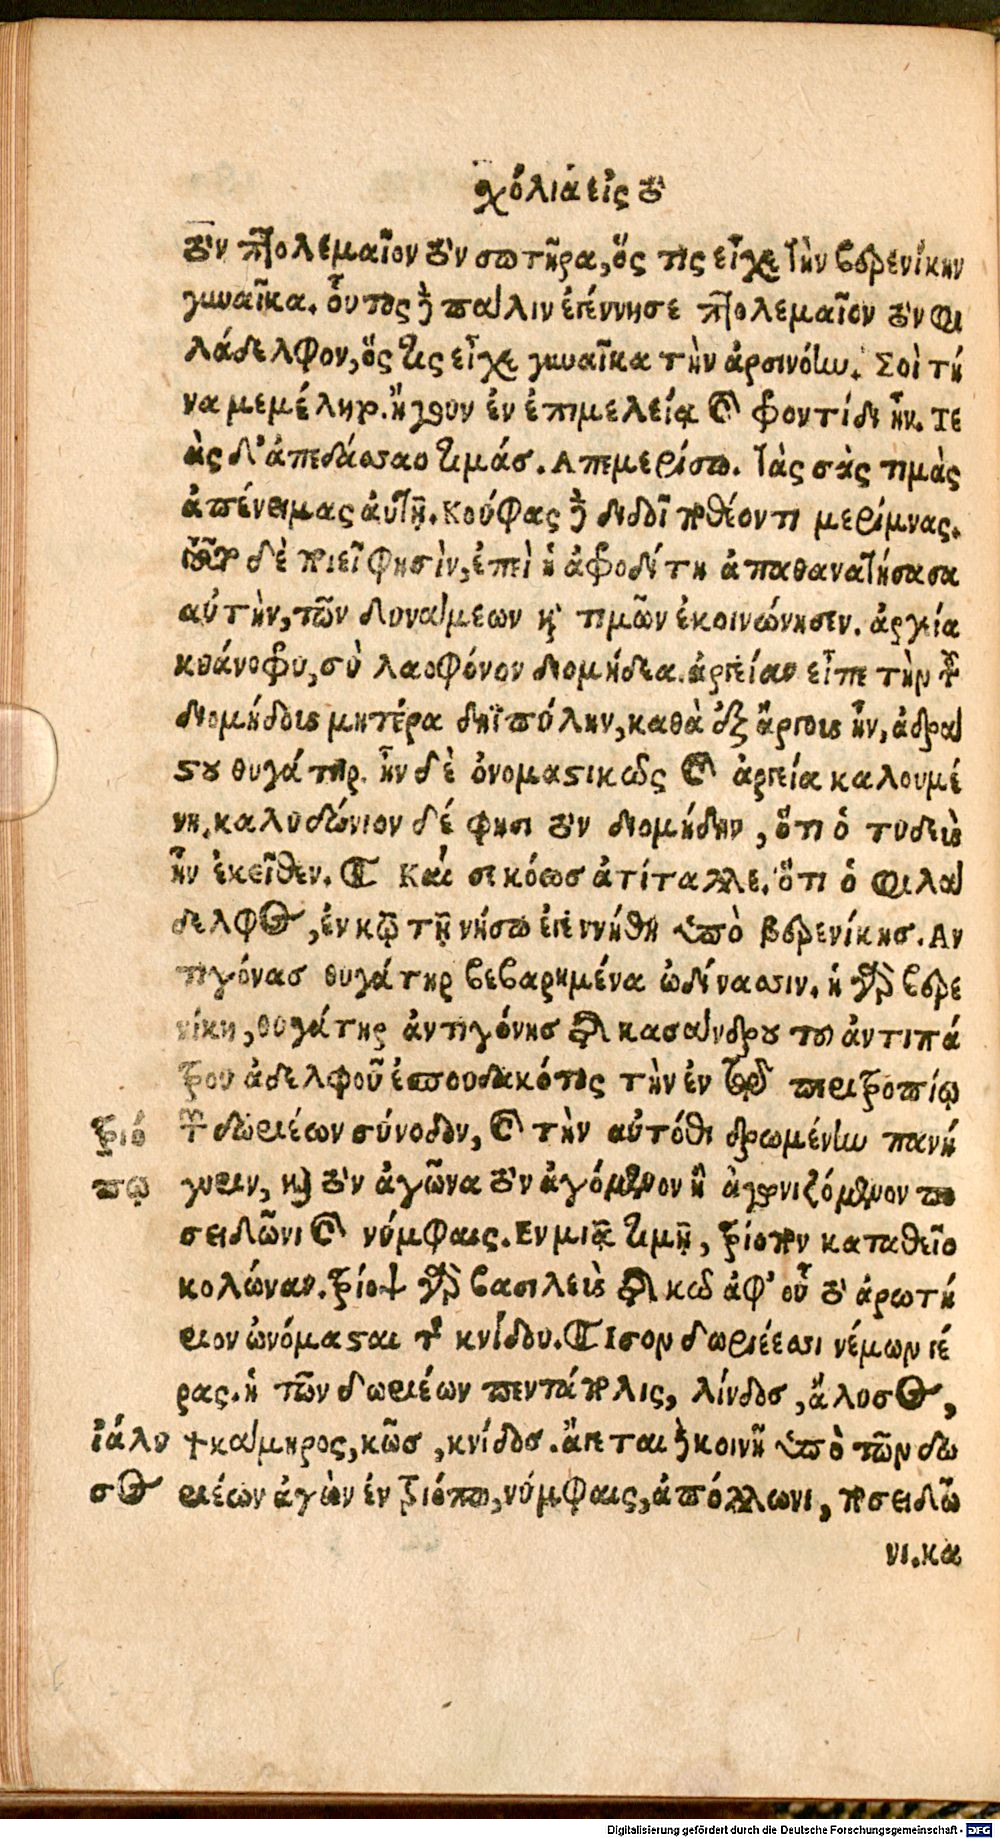 χόλια εἰς τὸ
τὸν πτολεμαῖον τὸν σωτῆρα, ὅς τις εἶχε τὴν βερενίκην
γυναῖκα. οὗτος δὲ πάλιν ἐγέννησε πτολεμαῖον τὸν φι
λάδελφον, ὅς τις εἶχε γυναῖκα τὴν ἀρσινόην. Σοὶ τή
να μεμέληρ. ἤγουν ἐν ἐπιμελείᾳ καὶ φροντίδι ἦν. Τε
ὰς δ' ἀπεδάσσαο τιμάσ. Απεμερίσω. τὰς σὰς τιμὰς
ἀπένειμας αὐτῇ. Κούφας δὲ διδοῖ ποθέοντι μερίμνας.
δὲ ποιεῖ φησὶν, ἐπεὶ ἡ ἀφροδίτη ἀπαθανατήσασα
αὐτὴν, τῶν δυνάμεων καὶ τιμῶν ἐκοινώνησεν. ἀργεία
κυάνοφρυ, σὺ λαοφόνον διομήδεα. ἀργείαν εἶπε τὴν τοῦ
διομήδους μητέρα δηϊπύλην, καθὰ ἐξ ἄργους ἦν, ἀδρά
στου θυγάτηρ. ἦν δὲ ὀνομαστικῶς καὶ ἀργεία καλουμέ
νη. καλυδώνιον δέ φησι τὸν διομήδην, ὅτι ὁ τυδεὺς
ἦν ἐκεῖθεν. Καί σε κόωσ ἀτίταλλε. ὅτι ὁ φιλά
δελφος, ἐν κῷ τῇ νήσῳ ἐγεννήθη ὑπὸ βερενίκησ. Αν
τιγόνασ θυγάτηρ βεβαρημένα ὠδίνασσιν. ἡ γὰρ βερε
νίκη, θυγάτης ἀντιγόνησ τῆς κασάνδρου τοῦ ἀντιπά
τρου ἀδελφοῦ ἐσπουδακότος τὴν ἐν τῷ περιτροπίῳ
τριό
τῶν δωριέων σύνοδον, καὶ τὴν αὐτόθι δρωμένην πανή
πῳ
γυριν, καὶ τὸν ἀγῶνα τὸν ἀγόμενον ἢ ἀγωνιζόμενον πο
σειδῶνι καὶ νύμφαις. Εν μιᾷ τιμῇ, τρίοπον καταθεῖο
κολώναν. τρίοψ γὰρ βασιλεὺς τῆς κῶ ἀφ' οὗ τὸ ἀρωτή
ριον ὠνόμασται τῆς κνίδου. Ισον δωριέεσσι νέμων γέ
ρας. ἡ τῶν δωριέων πεντάπολις, λίνδοσ, ἄλυσος,
ἰάλυ
κάμηρος, κῶσ, κνίδοσ. ἄγεται δὲ κοινῇ ὑπὸ τῶν δω
σος
ριέων ἀγὼν ἐν τριόπῳ, νύμφαις, ἀπόλλωνι, ποσειδῶ
νι. κα
Digitalisierung gefördert durch die Deutsche Forschungsgemeinschaft - DFG